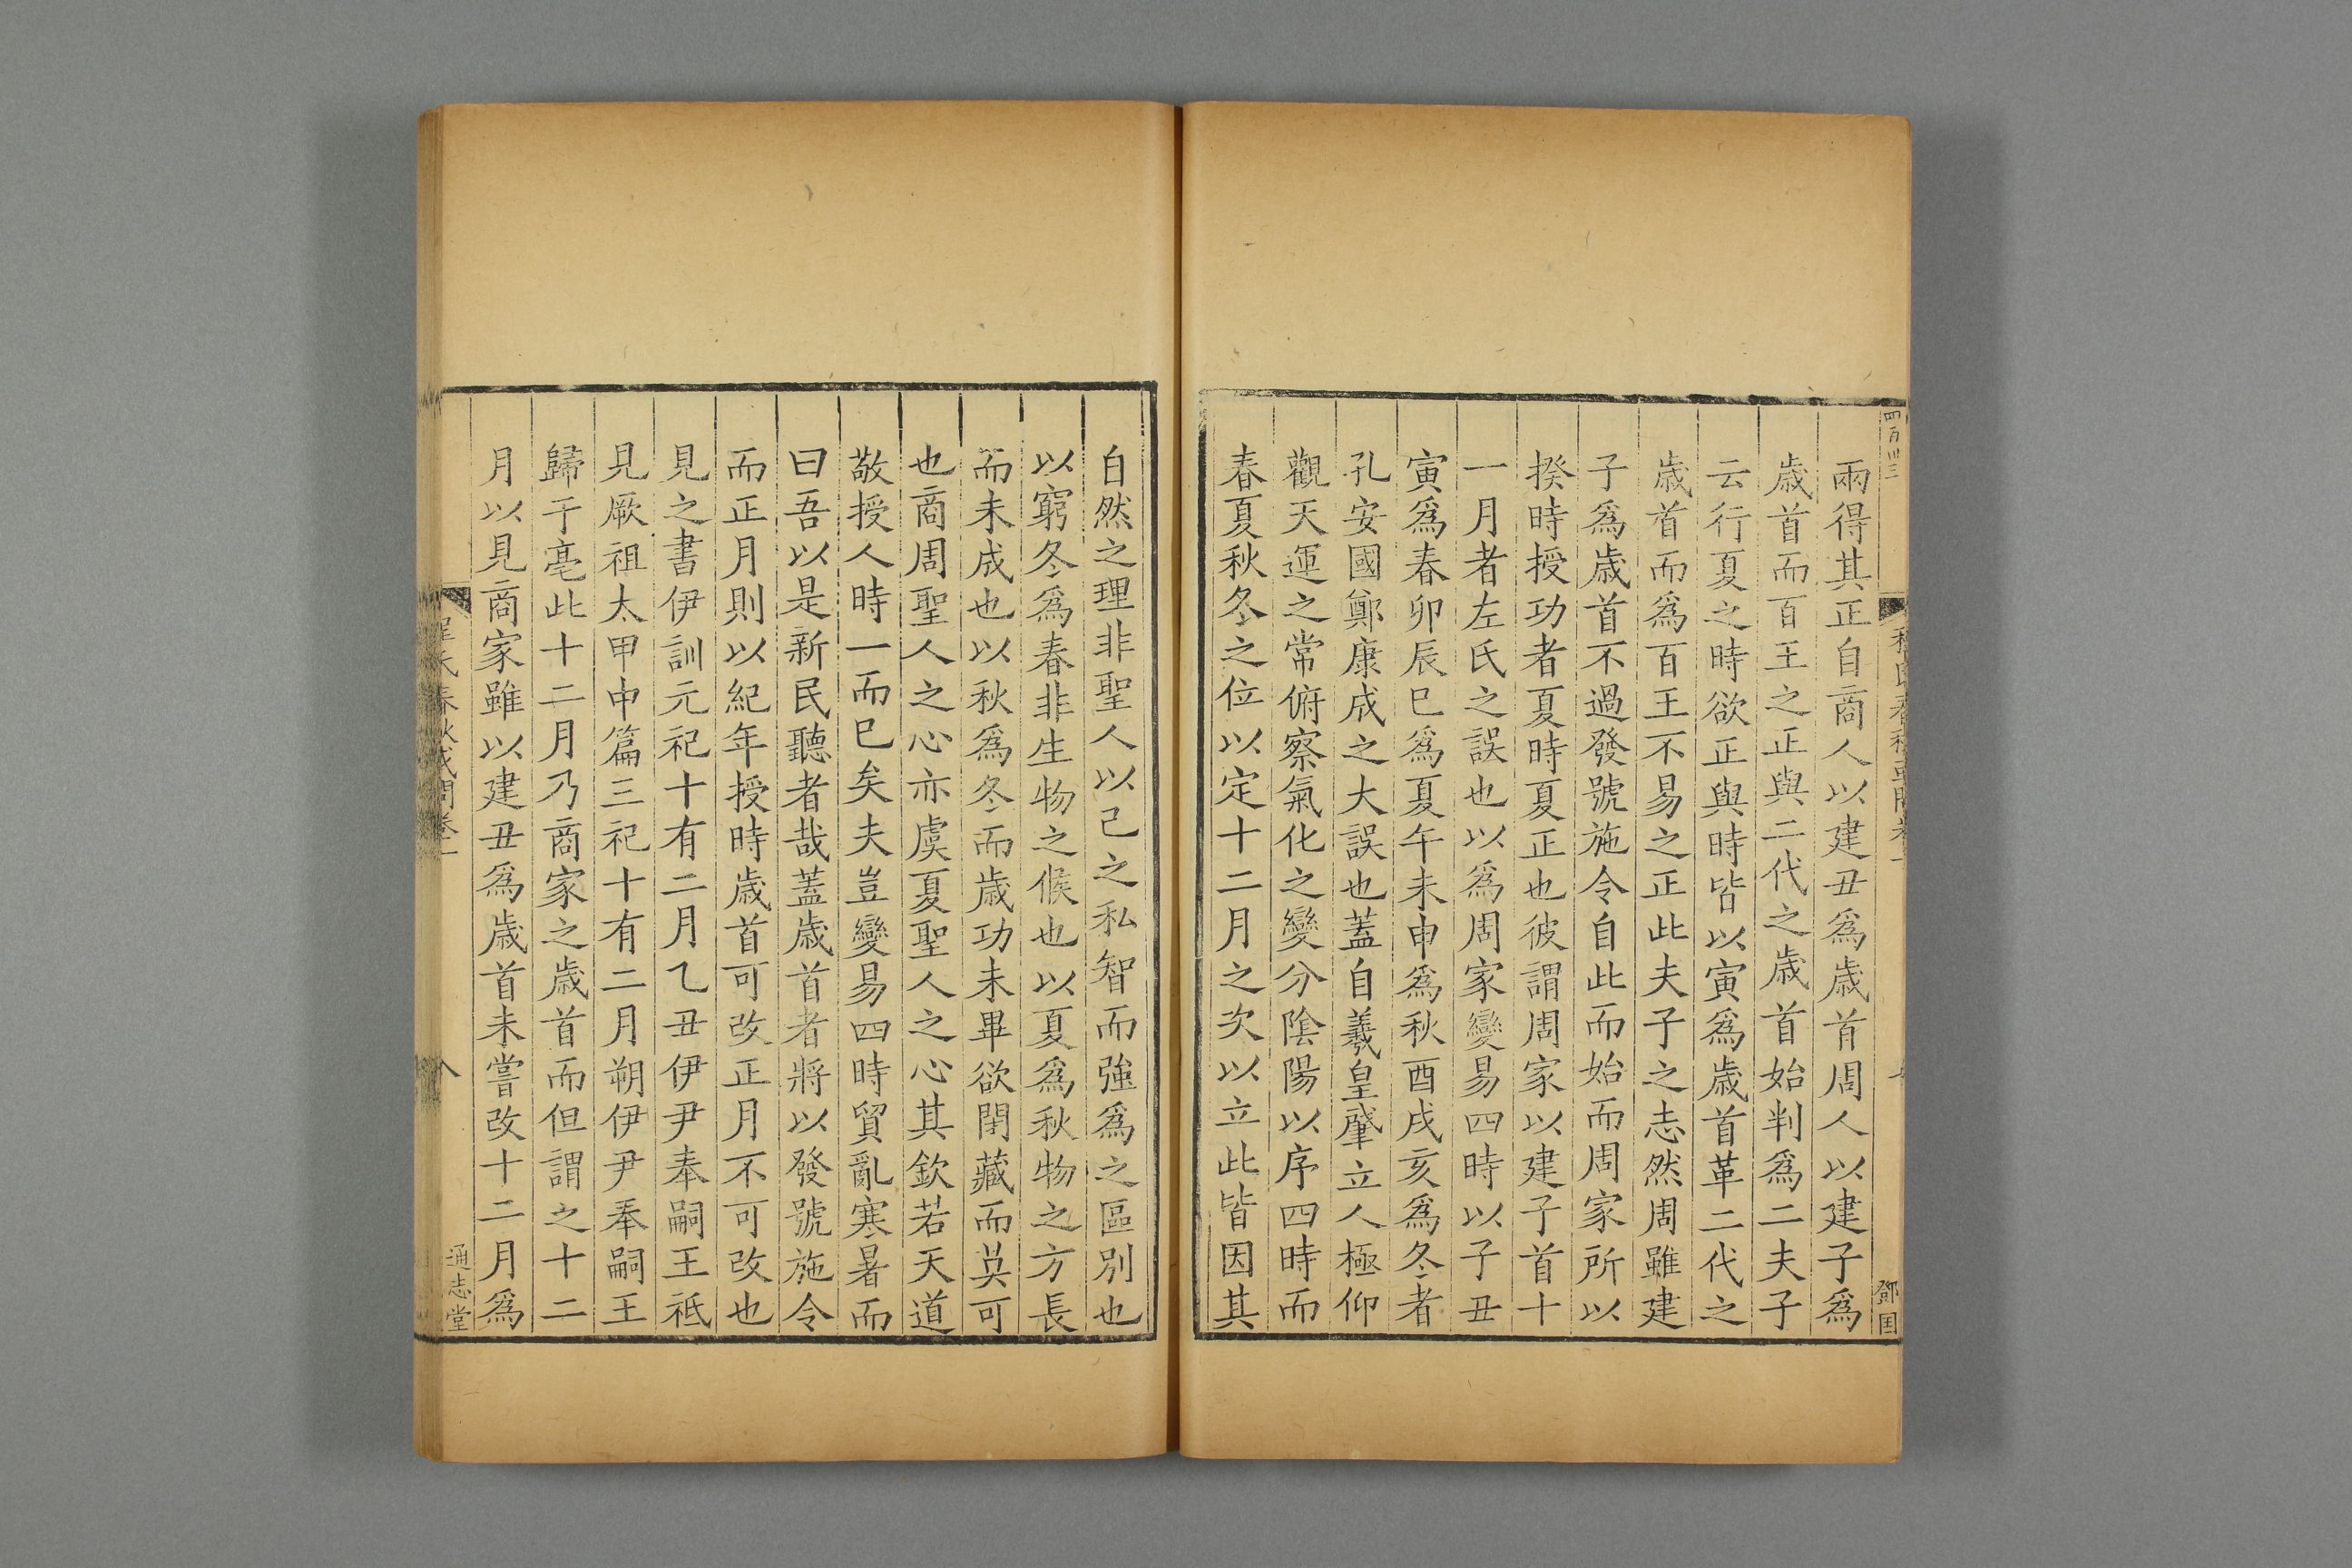 兩得其正自商人以建丑爲歲首周人以建子爲
歲首而百王之正與二代之歲首始判爲二夫子
云行夏之時欲正與時皆以寅爲歲首革二代之
歲首而爲百王不易之正此夫子之志然周雖建
子爲歲首不過發號施令自此而始而周家所以
揆時授功者夏時夏正也彼謂周家以建子首十
一月者左氏之誤也以爲周家變易四時以子丑
寅爲春卯辰巳爲夏午未申爲秋酉戌亥爲冬者
孔安國鄭康成之大誤也蓋自羲皇肇立人極仰
觀天運之常俯察氣化之變分陰陽以序四時而
春夏秋冬之位以定十二月之次以立此皆因其
自然之理非聖人以己之私智而強爲之區別也
以窮冬爲春非生物之候也以夏爲秋物之方長
而未成也以秋爲冬而歲功未畢欲閉藏而莫可
也商周聖人之心亦虞夏聖人之心其欽若天道
敬授人時一而已矣夫豈變易四時貿亂寒暑而
曰吾以是新民聽者哉蓋歲首者將以發號施令
而正月則以紀年授時歲首可改正月不可改也
見之書伊訓元祀十有二月乙丑伊尹奉嗣王祗
見厥祖太甲中篇三祀十有二月朔伊尹奉嗣王
歸于亳此十二月乃商家之歲首而但謂之十二
月以見商家雖以建丑爲歲首未嘗改十二月爲
春秋或問卷一
八
通志堂